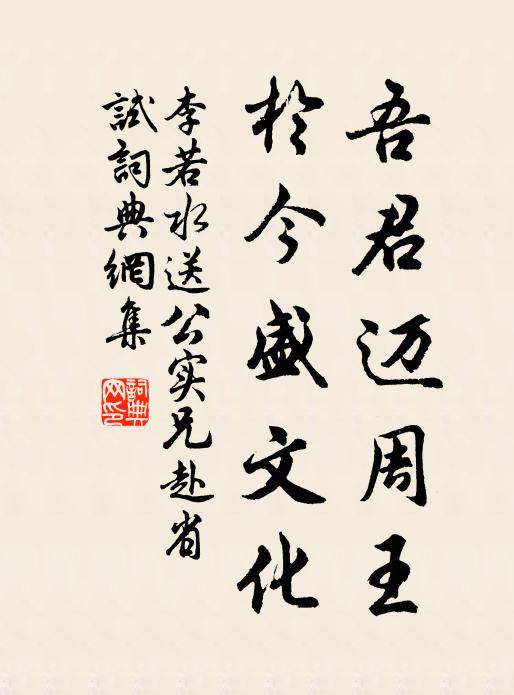 吾君迈周王
於今盛文化
李若水送公实兄赴省
試詞典網集
詞典
网印